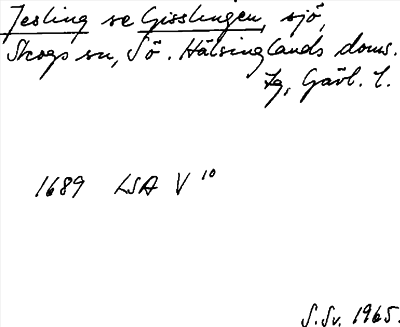 Jesling se Gisslingen, sjö,
Skogs sn, Sö. Hälsinglands doms.
Lg, Gävl. l.
1689 LSA V 10
S. Sv. 1965.